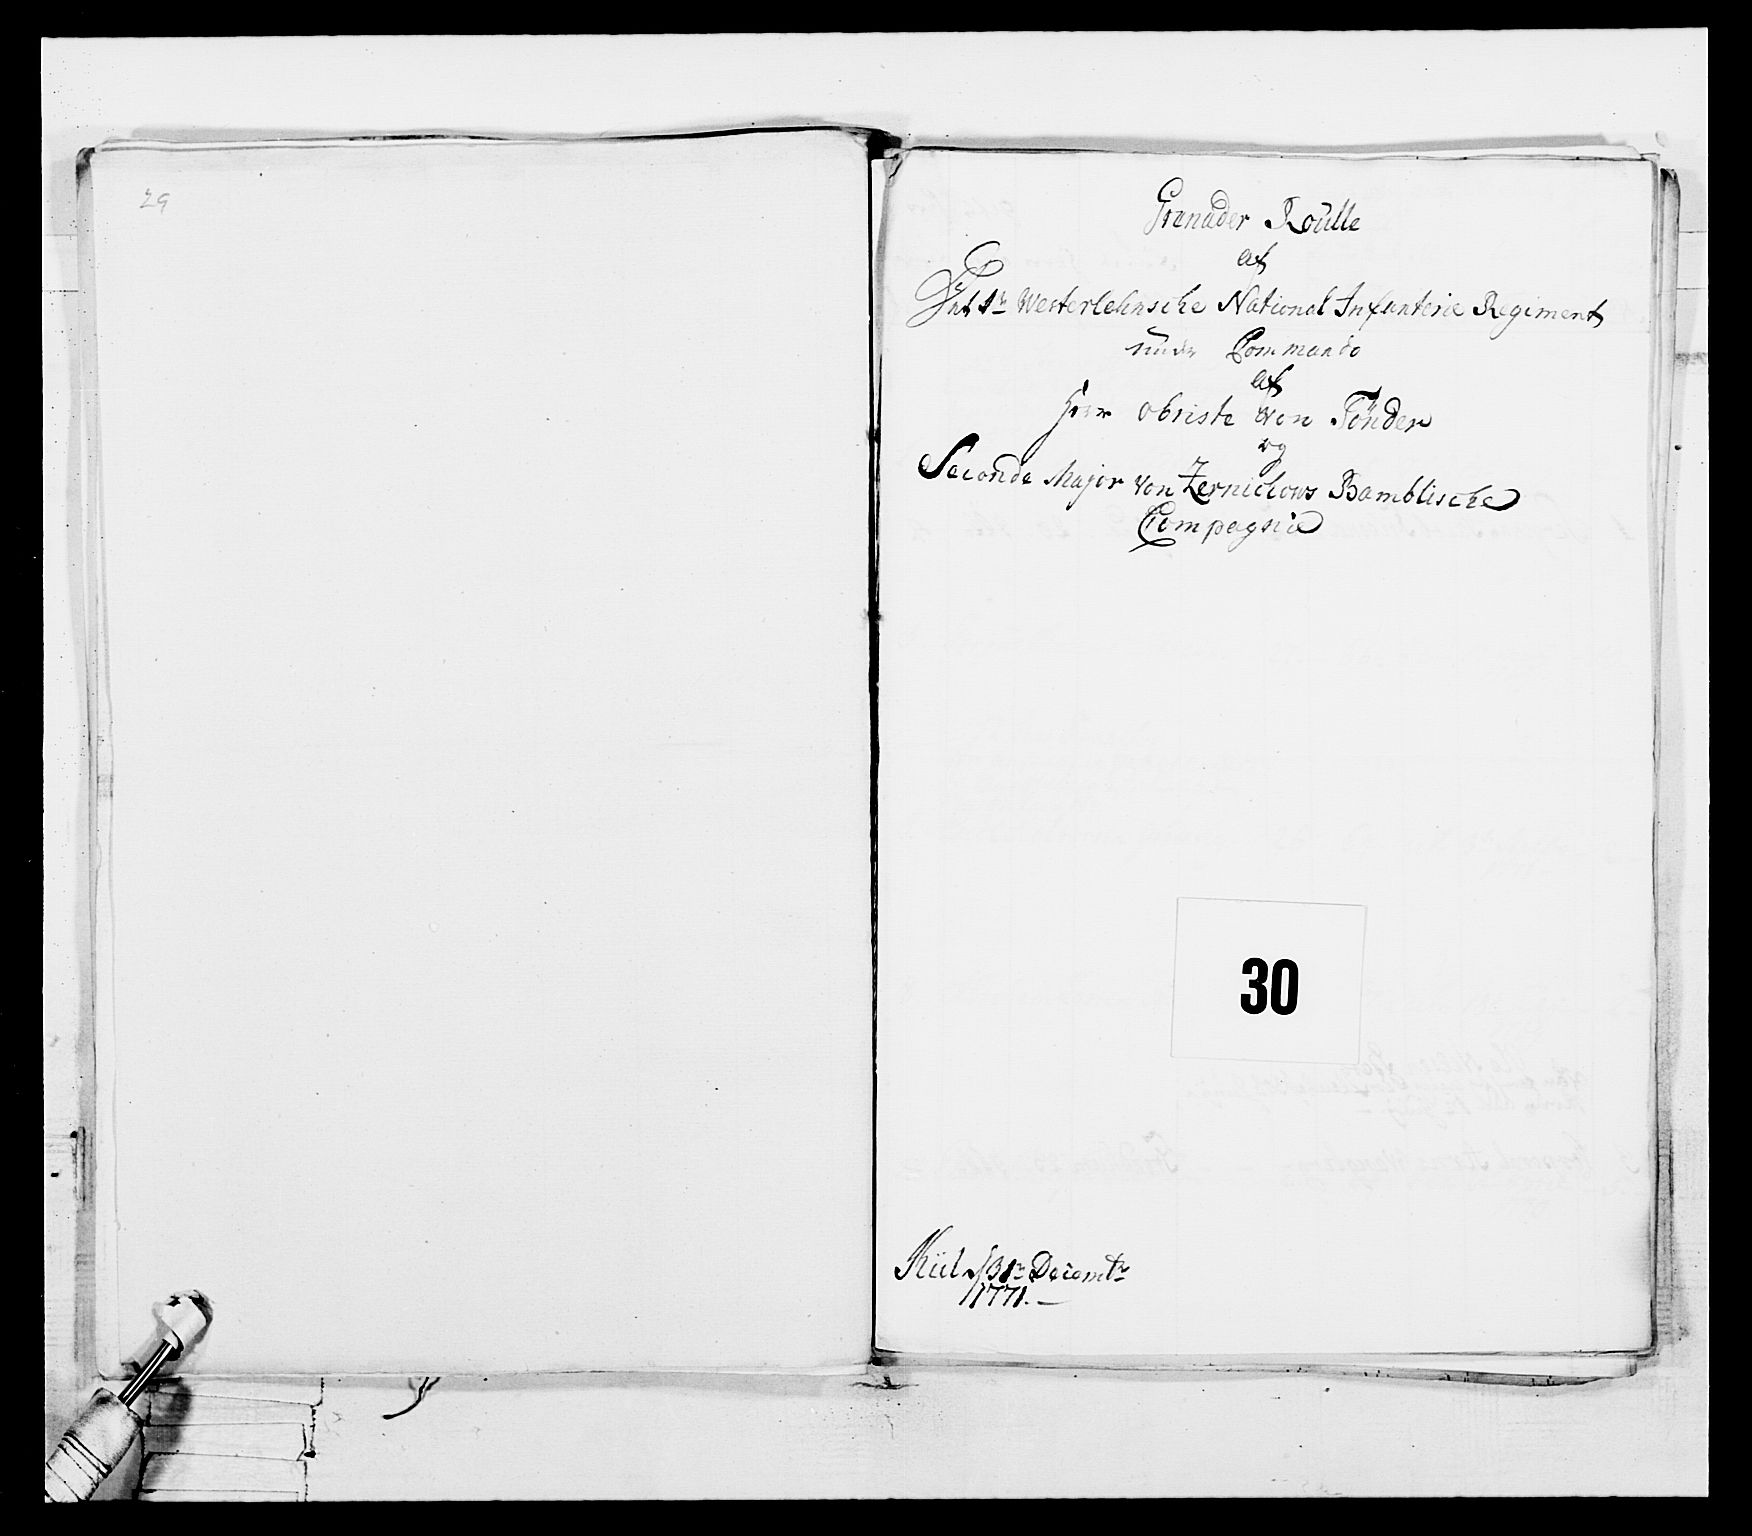 29
Grenader Roülle
af
Det 1te Westerlehnsche National Infanterie Regiment
under Commando
af
Herr Obriste von Tönder
og
Seconde Major von Zernichows Bamblische
Compagnie
30
31te Decembr
1771.